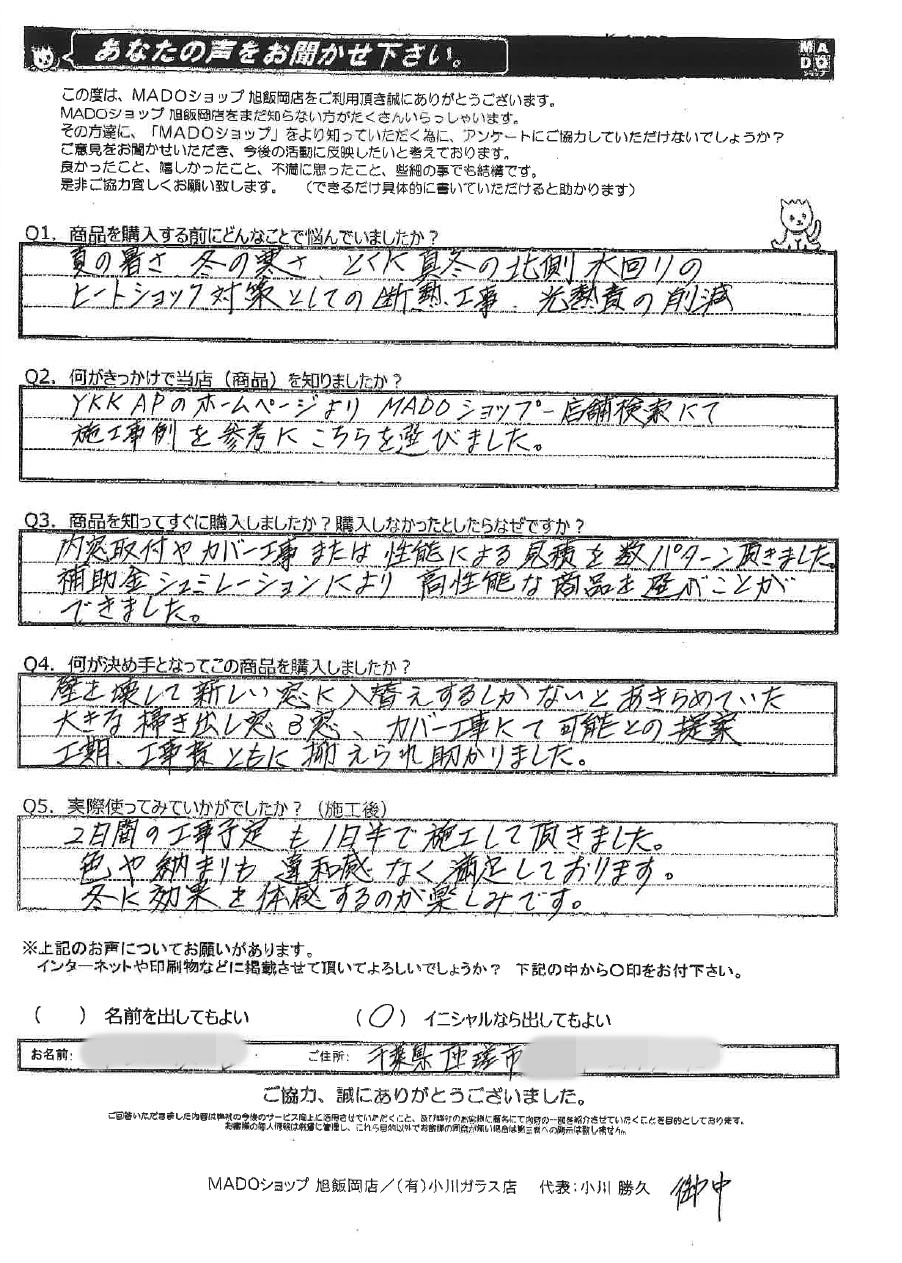 あなたの声をお聞かせ下さい。
MADO
ショップ
この度は、MADOショップ 旭飯岡店をご利用頂き誠にありがとうございます。
MADOショップ 旭飯岡店をまだ知らない方がたくさんいらっしゃいます。
その方達に、「MADOショップ」をより知っていただく為に、アンケートにご協力していただけないでしょうか？
ご意見をお聞かせいただき、今後の活動に反映したいと考えております。
良かったこと、嬉しかったこと、不満に思ったこと、些細の事でも結構です。
是非ご協力宜しくお願い致します。 （できるだけ具体的に書いていただけると助かります）
Q1．商品を購入する前にどんなことで悩んでいましたか？
夏の暑さ、冬の寒さ、とくに真冬の北側水回りの
ヒートショック対策としての断熱工事、光熱費の削減
Q2．何がきっかけで当店（商品）を知りましたか？
YKK APのホームページより MADOショップ店舗検索にて
施工事例を参考にこちらを選びました。
Q3．商品を知ってすぐに購入しましたか？購入しなかったとしたらなぜですか？
内窓取付やカバー工事または性能による見積を数パターン頂きました。
補助金シュミレーションにより高性能な商品を選ぶことが
できました。
Q4．何が決め手となってこの商品を購入しましたか？
壁を壊して新しい窓に入替えするしかないとあきらめていた
大きな掃き出し窓3窓、カバー工事にて可能との提案
工期、工事費ともに抑えられ助かりました。
Q5．実際使ってみていかがでしたか？（施工後）
2日間の工事予定も1日半で施工して頂きました。
色や納まりも違和感なく満足しております。
冬に効果を体感するのが楽しみです。
※上記のお声についてお願いがあります。
インターネットや印刷物などに掲載させて頂いてよろしいでしょうか？ 下記の中から○印をお付下さい。
（ ）名前を出してもよい （○）イニシャルなら出してもよい
お名前: ご住所: 千葉県匝瑳市
ご協力、誠にありがとうございました。
ご回答いただきました内容は弊社の今後のサービス向上に活用させていただくこと、及び検討のお客様に匿名にて内容の一部を紹介させていただくことを目的としております。
お客様の個人情報は厳重に管理し、これら目的以外でお客様の同意が無い場合は第三者への開示は致しません。
MADOショップ 旭飯岡店／（有）小川ガラス店 代表：小川 勝久 御中